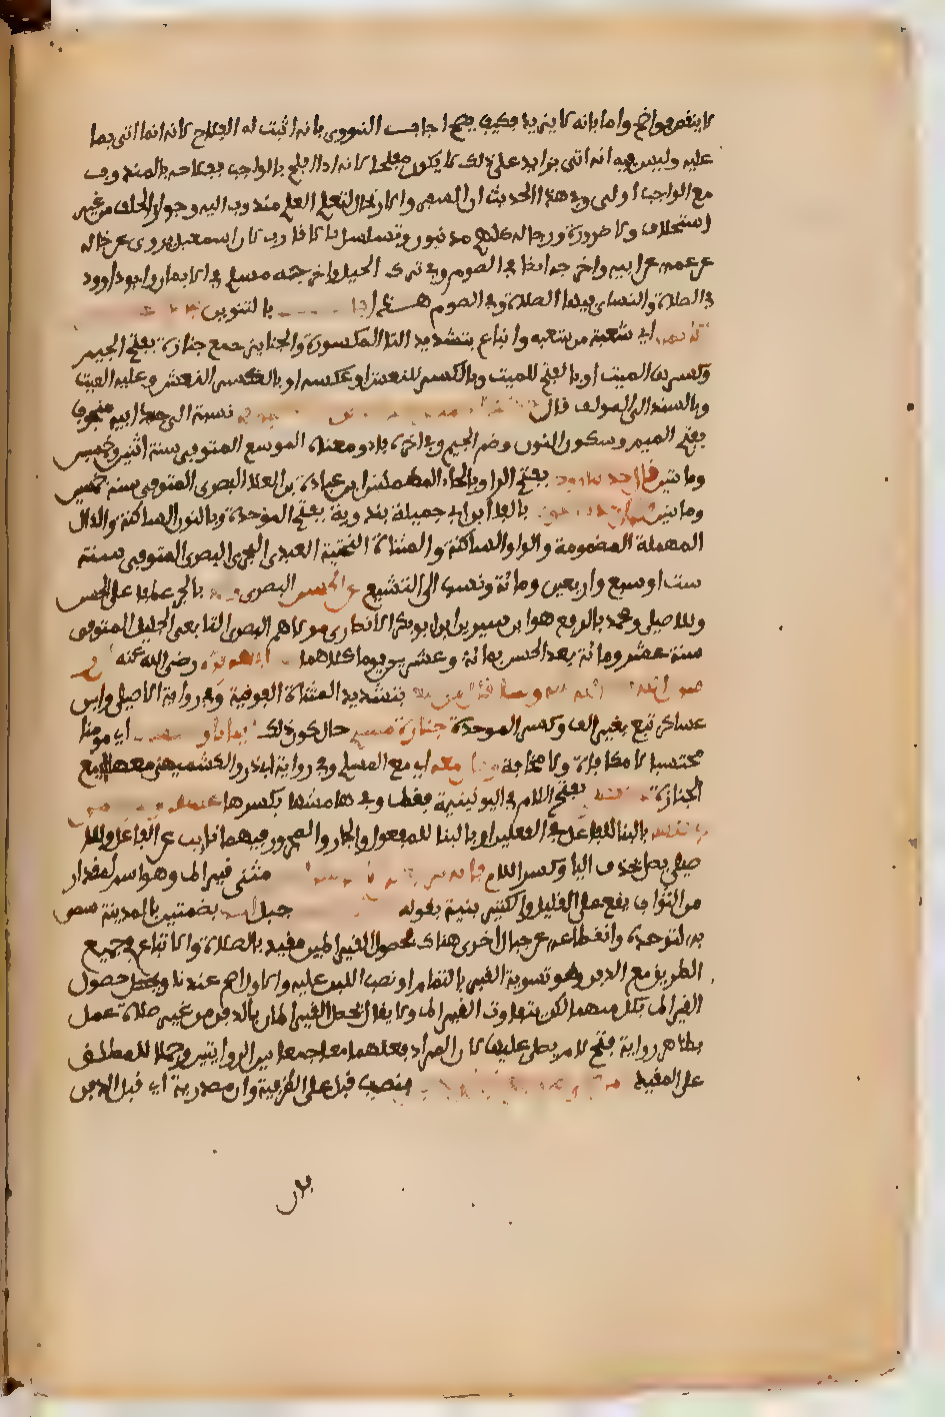 لا ينقص فواضح واما بانه لا يزيد فكيف يصح اجاب النووي بانه اثبت له الفلاح لانه اتى بما
عليه وليس فيه انه اتى بزايد على ذلك لا يكون مفلحا لانه اذا افلح بالواجب ففلاحه بالمندوب
مع الواجب اولى وفي هذا الحديث ان السفر والارتحال لتعلم العلم مندوب اليه وجواز الحلف من غير
استحلاف ولا ضرورة ورجاله كلهم مدنيون وتسلسل بالاقارب لان اسمعيل يروي عن خاله
عن عمه عن ابيه واخرجه ايضا في الصوم وفي ترك الحيل واخرجه مسلم في الايمان وابو داوود
في الصلاة والنساي فيها الصلاة وفي الصوم هـ بالتنوين
اي شعبة من شعبه واتباع بتشديد التا المكسورة والجنايز جمع جنازة بفتح الجيم
وكسرها الميت او بالفتح للميت وبالكسر للنعش او عكسه او بالكسر النعش وعليه الميت
وبالسند الى المولف قال نسبة الى جد ابيه منجوف
بفتح الميم وسكون النون وضم الجيم وفي اخره فاء ومعناه الموسع المتوفى سنة اثنين وخمسين
ومايتين بفتح الرا وبالحاء المهملتين ابن عبادة بن العلا البصري المتوفى سنة خمس
ومايتين بالفا ابن ابي جميلة بندوية بفتح الموحدة وبالنون الساكنة والدال
المهملة المضمومة والواو الساكنة والمثناة التحتية العبدي الهجري البصري المتوفى سنة
ست او سبع واربعين ومائة ونسب الى التشيع عن الحسن البصري بالجر عطفا على الحسن
وللاصيلي ومحمد بالرفع هو ابن سيرين ابو بكر الانصاري مولاهم البصري التابعي الجليل المتوفى
سنة عشر ومائة بعد الحسن بمائة وعشرين يوما كلاهما ابي هريرة رضي الله عنه
بتشديد المثناة الفوقية وفي رواية الاصيلي وابن
عساكر تبع بغير الف وكسر الموحدة جنازة مسلم حال كون ذلك ايمانا اي مومنا
محتسبا لا مكافاة ولا مخافة معه اي مع المسلم وفي رواية ابي ذر والكشميهني معها اي مع
الجنازة بفتح اللام في اليونينية فقط وفي هامشها بكسرها
بالبنا للفاعل في الفعلين او بالبنا للمفعول والجار والمجرور فيهما نايب عن الفاعل وللا
صيلي يصل بحذف اليا وكسر اللام مثنى قيراط وهو اسم لمقدار
من الثواب يقع على القليل والكثير بينه بقوله جبل بضمتين بالمدينة سمي
به لتوحده وانقطاعه عن جبال اخرى هناك فحصول القيراطين مقيد بالصلاة والاتباع في جميع
الطريق مع الدفن وهو تسوية القبر بالتمام او نصب اللبن عليه والاول اصح عندنا ويحتمل حصول
القيراط بكل منهما لكن بتفاوت القيراط ولا يقال تحصل القيراطان بالدفن من غير صلاة عمل
بظاهر رواية فتح لام يصلى عليها لان المراد فعلهما معا جمعا بين الروايتين وحملا للمطلق
على المقيد بنصب قبل على الظرفية وان مصدرية اي قبل الدفن